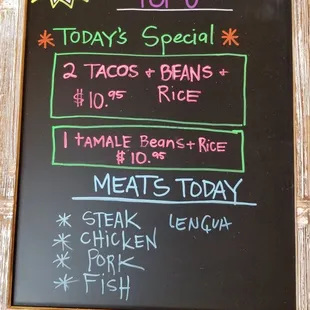 TODAY'S Special
2 TACOS + BEANS +
$10.95 RICE
1 TAMALE Beans + RICE
$10.95
MEATS TODAY
* STEAK LENGUA
* CHICKEN
* PORK
* FISH